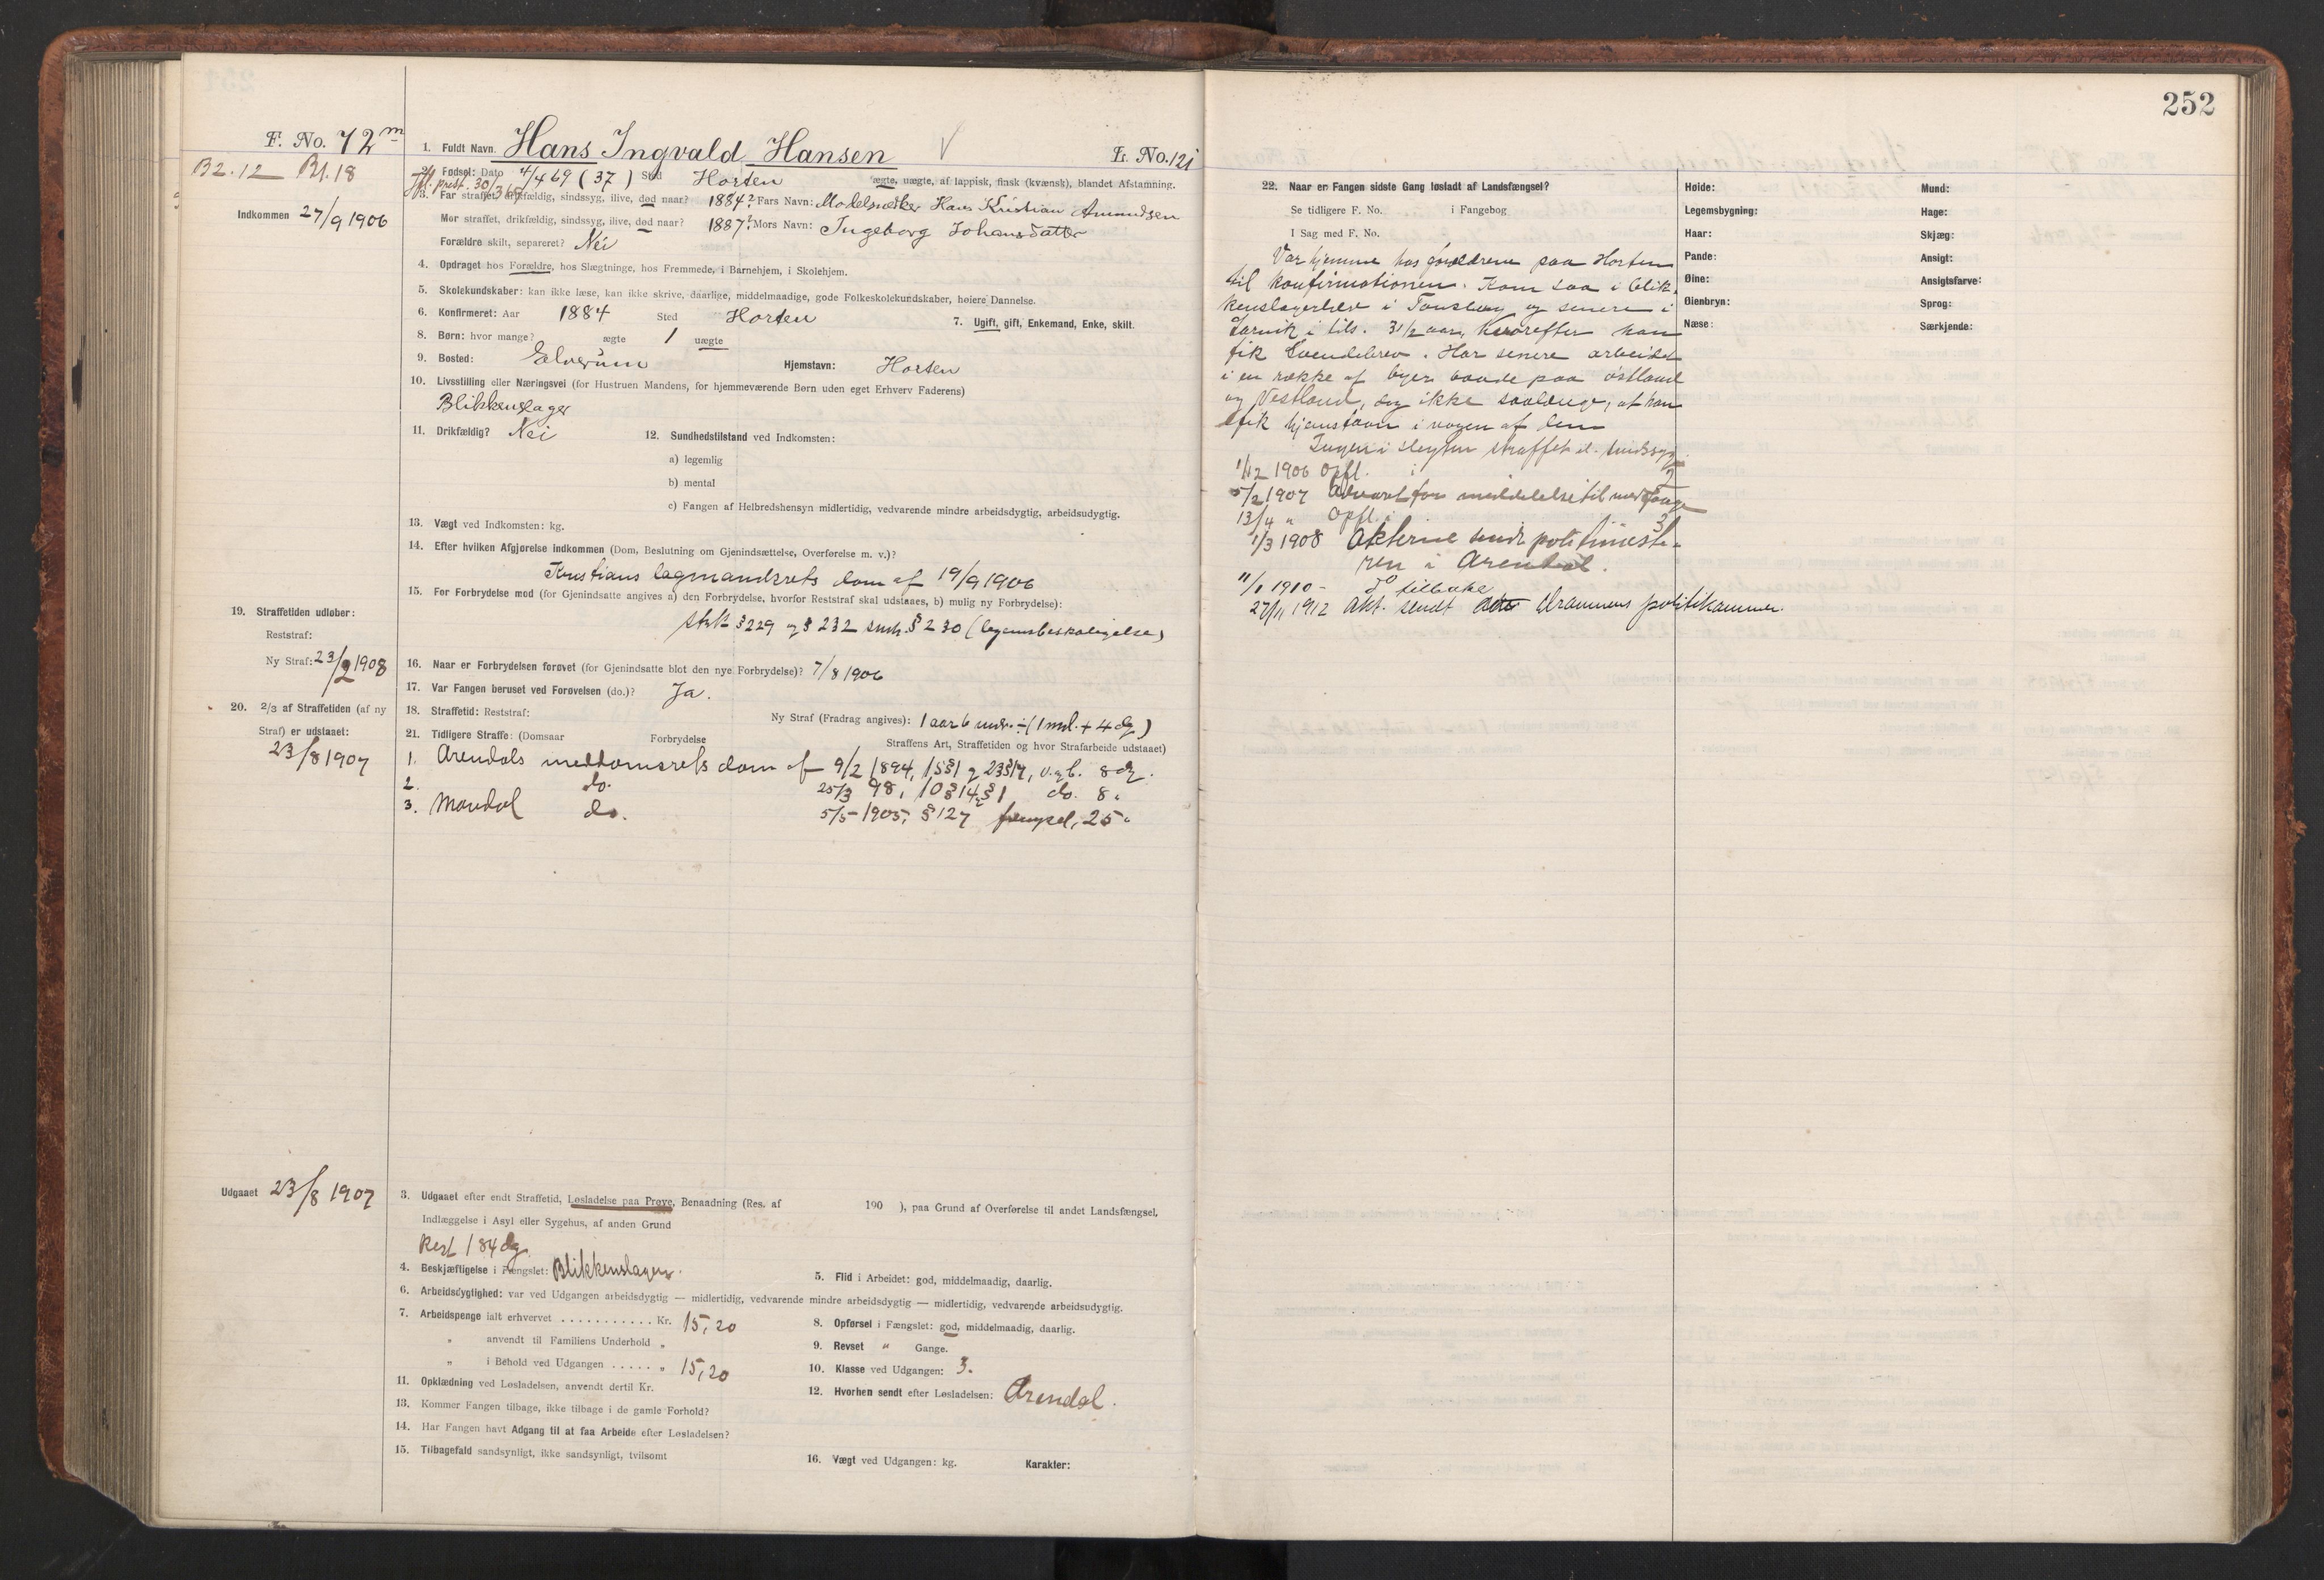 252
F. No. 72 m
B2.12 Bl.18
Indkommen 27/9 1906
1. Fuldt Navn. Hans Ingvald Hansen L. No. 121
2. Fødsel: Dato 4/4 69 (37) Sted Horten ægte, uægte, af lappisk, finsk (kvænsk), blandet Afstamning.
Ifl. prest. 30/3 67
3. Far straffet, drikfældig, sindssyg, ilive, død naar? 1884? Fars Navn: Modelsnedker Hans Kristian Amundsen
Mor straffet, drikfældig, sindssyg, ilive, død naar? 1887? Mors Navn: Ingeborg Johansdatter
Forældre skilt, separeret? Nei
4. Opdraget hos Forældre, hos Slægtninge, hos Fremmede, i Barnehjem, i Skolehjem.
5. Skolekundskaber: kan ikke læse, kan ikke skrive, daarlige, middelmaadige, gode Folkeskolekundskaber, høiere Dannelse.
6. Konfirmeret: Aar 1884 Sted Horten 7. Ugift, gift, Enkemand, Enke, skilt.
8. Børn: hvor mange? ægte 1 uægte
9. Bosted: Elverum Hjemstavn: Horten
10. Livsstilling eller Næringsvei (for Hustruen Mandens, for hjemmeværende Børn uden eget Erhverv Faderens)
Blikkenslager
11. Drikfældig? Nei 12. Sundhedstilstand ved Indkomsten:
a) legemlig
b) mental
c) Fangen af Helbredshensyn midlertidig, vedvarende mindre arbeidsdygtig, arbeidsudygtig.
13. Vægt ved Indkomsten: kg.
14. Efter hvilken Afgjørelse indkommen (Dom, Beslutning om Gjenindsættelse, Overførelse m. v.)?
Kristians lagmandsrets dom af 19/9 1906
15. For Forbrydelse mod (for Gjenindsatte angives a) den Forbrydelse, hvorfor Reststraf skal udstaaes, b) mulig ny Forbrydelse):
strl § 229 og § 232 smh. § 230 (legemsbeskadigelse)
19. Straffetiden udløber:
Reststraf:
Ny Straf: 23/2 1908
16. Naar er Forbrydelsen forøvet (for Gjenindsatte blot den nye Forbrydelse)? 7/8 1906
17. Var Fangen beruset ved Forøvelsen (do.)? Ja.
20. 2/3 af Straffetiden (af ny
Straf) er udstaaet:
23/8 1907
18. Straffetid: Reststraf: Ny Straf (Fradrag angives): 1 aar 6 mdr. ÷ (1 md. + 4 dg)
21. Tidligere Straffe: (Domsaar Forbrydelse Straffens Art, Straffetiden og hvor Strafarbeide udstaaet)
1. Arendals meddomsrets dom af 9/2 1894, 15§1 g 23§17, v.g.b. 8 dg.
2. do. 25/3 98, 10§14,§1 do. 8 "
3. Mandal do. 5/5 1905, § 127 fængsel, 25 "
Udgaaet 23/8 1907
3. Udgaaet efter endt Straffetid, Løsladelse paa Prøve, Benaadning (Res. af 190 ), paa Grund af Overførelse til andet Landsfængsel,
Indlæggelse i Asyl eller Sygehus, af anden Grund
Rest 184 dg.
4. Beskjæftigelse i Fængslet: Blikkenslager. 5. Flid i Arbeidet: god, middelmaadig, daarlig.
6. Arbeidsdygtighed: var ved Udgangen arbeidsdygtig — midlertidig, vedvarende mindre arbeidsdygtig — midlertidig, vedvarende arbeidsudygtig.
7. Arbeidspenge ialt erhvervet . . . . . . . . . . . Kr. 15,20 8. Opførsel i Fængslet: god, middelmaadig, daarlig.
" anvendt til Familiens Underhold " 9. Revset " Gange.
" i Behold ved Udgangen . . . . . " 15,20 10. Klasse ved Udgangen: 3.
11. Opklædning ved Løsladelsen, anvendt dertil Kr. 12. Hvorhen sendt efter Løsladelsen: Arendal.
13. Kommer Fangen tilbage, ikke tilbage i de gamle Forhold?
14. Har Fangen havt Adgang til at faa Arbeide efter Løsladelsen?
15. Tilbagefald sandsynligt, ikke sandsynligt, tvilsomt
16. Vægt ved Udgangen: kg. Karakter:
22. Naar er Fangen sidste Gang løsladt af Landsfængsel?
Se tidligere F. No. i Fangebog
I Sag med F. No.
Var hjemme hos forældrene paa Horten
til konfirmationen. Kom saa i blik-
kenslagerlære i Tønsberg og senere i
Larvik i tils. 3 1/2 aar, hvorefter han
fik svendebrev. Har senere arbeidet
i en række af byer baade paa østland
og Vestland, dog ikke saalænge, at han
fik hjemstavn i nogen af dem
Ingen i slegten straffet el. sindssyg.
1/12 1906 Opfl. i 2
5/2 1907 Advaret for meddelelse til medfange
13/4 " Opfl. i 3
1/3 1908 Akterne sendt politimeste-
ren i Arendal.
11/1 1910 - Do tilbake
27/11 1912 Akt. sendt Drammens politikammer.
Høide: Mund:
Legemsbygning: Hage:
Haar: Skjæg:
Pande: Ansigt:
Øine: Ansigtsfarve:
Øienbryn: Sprog:
Næse: Særkjende: